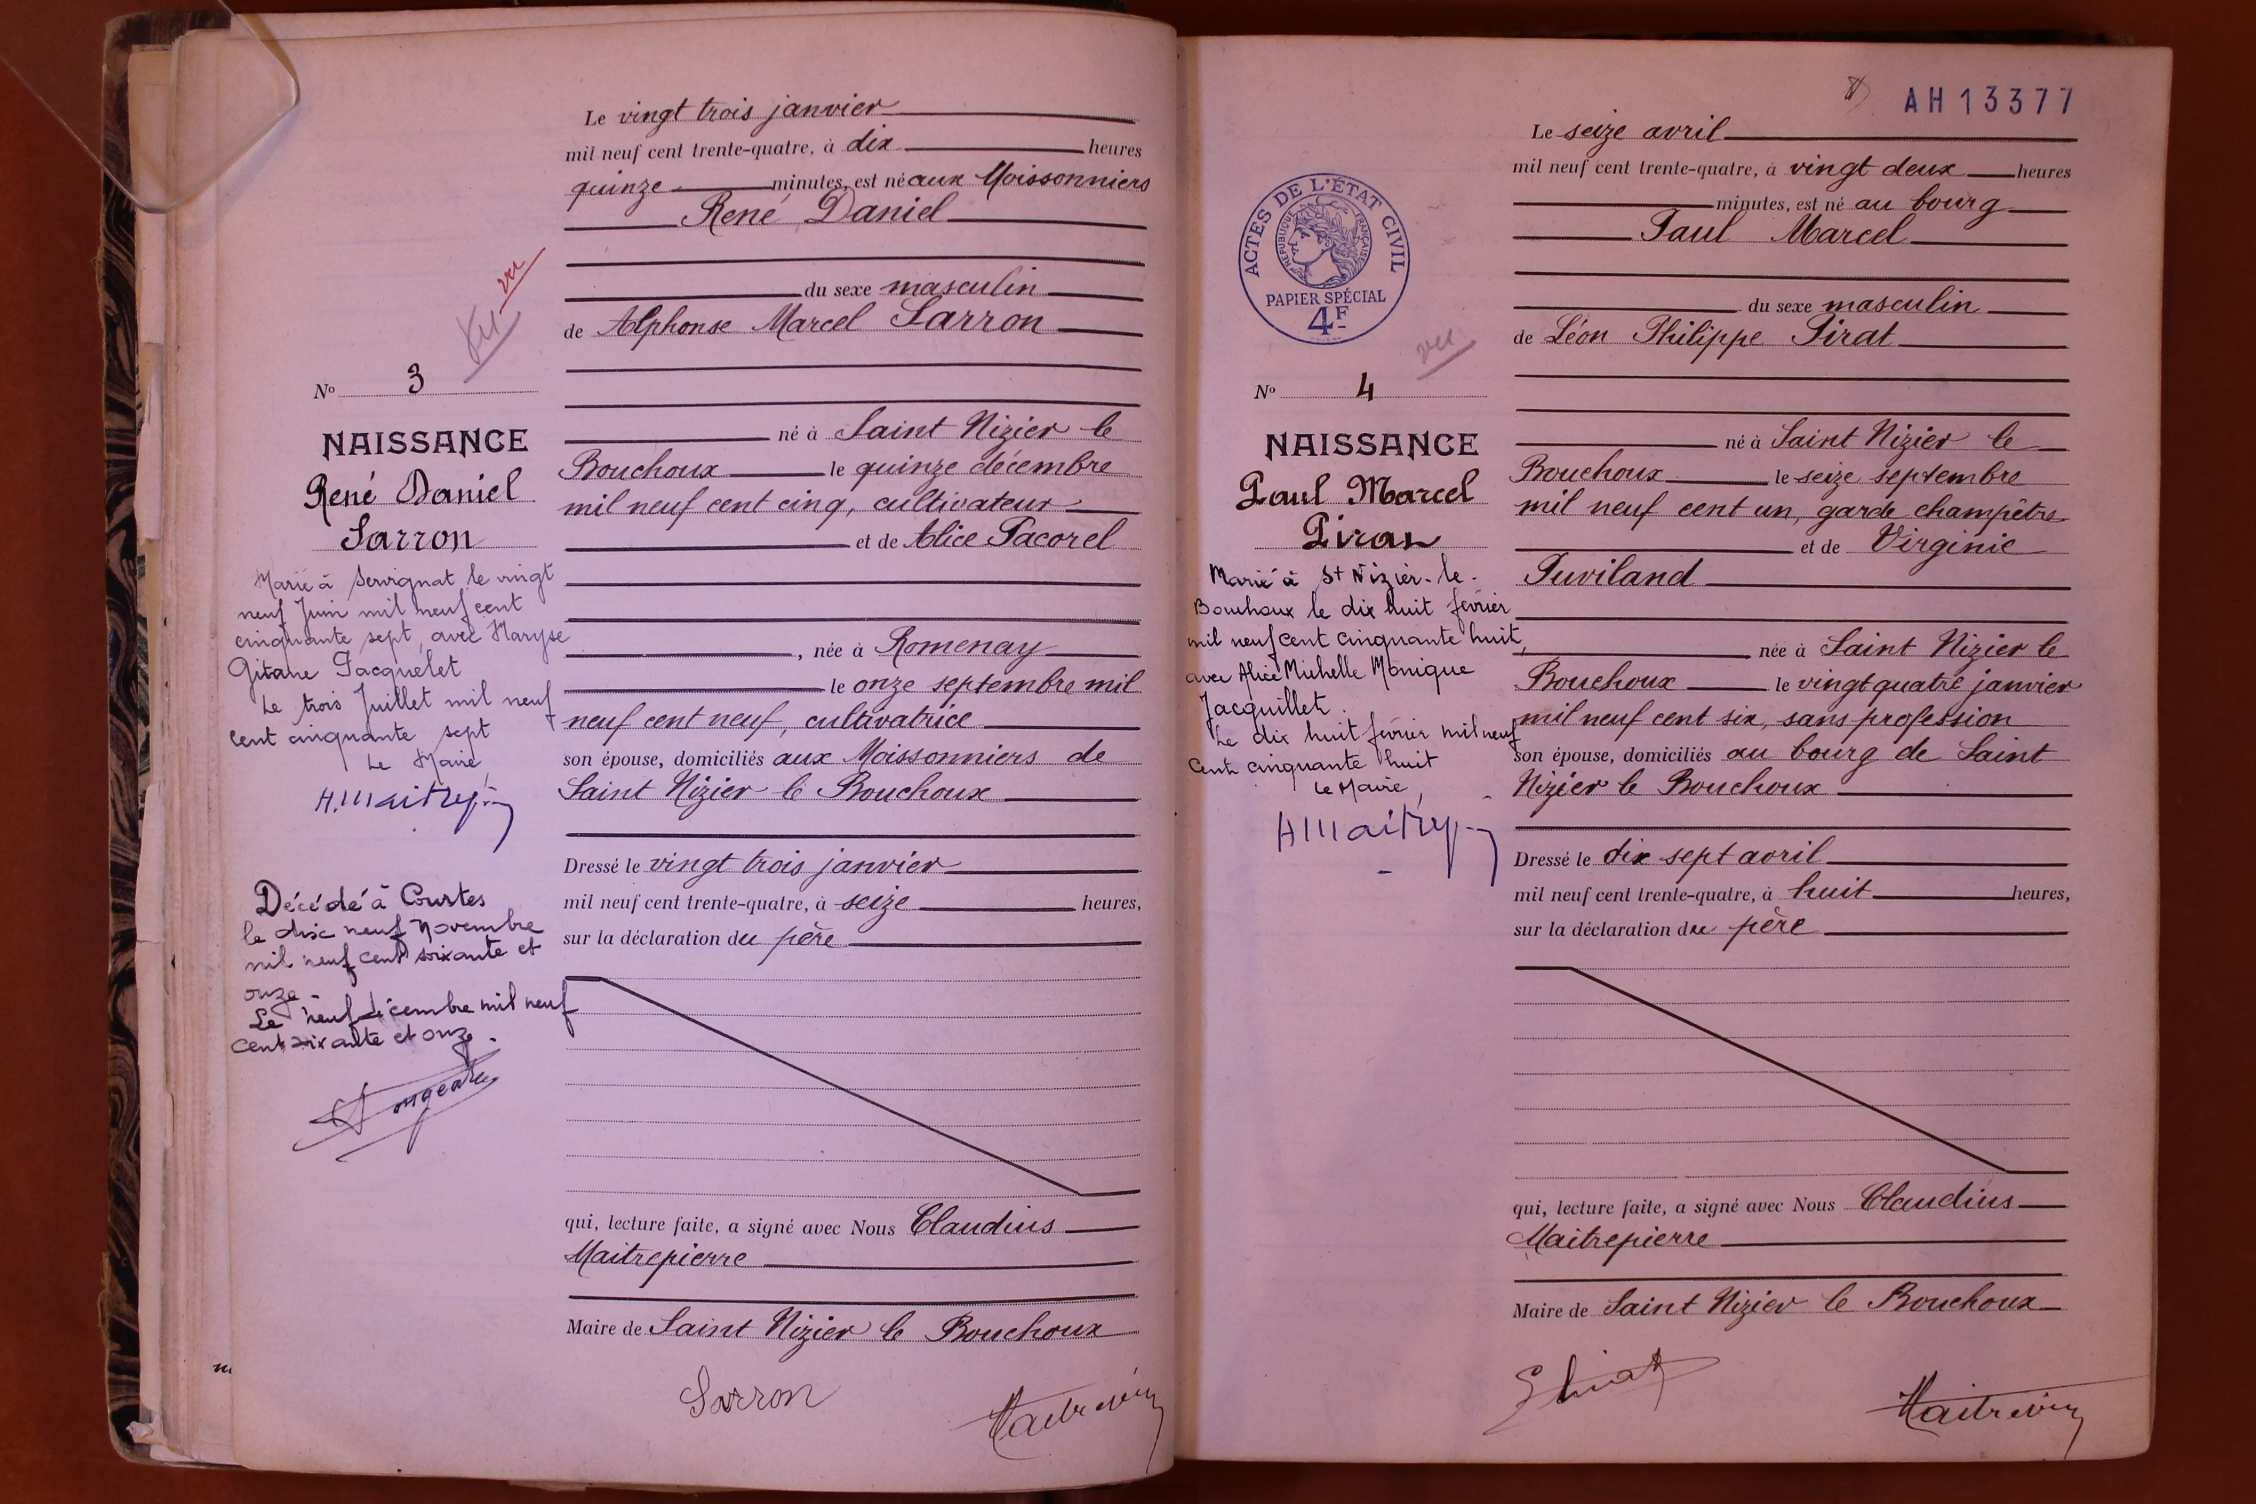 Le vingt trois janvier
mil neuf cent trente-quatre, à dix heures
quinze minutes, est né aux Moissonniers
René Daniel
du sexe masculin
de Alphonse Marcel Sarron
vu
Vu
N° 3
NAISSANCE
René Daniel
Sarron
né à Saint Nizier le
Bouchoux le quinze décembre
mil neuf cent cinq, cultivateur
et de Alice Pacorel
, née à Romenay
le onze septembre mil
neuf cent neuf, cultivatrice
son épouse, domiciliés aux Moissonniers de
Saint Nizier le Bouchoux
Dressé le vingt trois janvier
mil neuf cent trente-quatre, à seize heures,
sur la déclaration du père
qui, lecture faite, a signé avec Nous Claudius
Maitrepierre
Maire de Saint Nizier le Bouchoux
Sarron
Marié à Servignat le vingt
neuf Juin mil neuf cent
cinquante sept, avec Maryse
Gitane Jacquelet
Le trois Juillet mil neuf
cent cinquante sept
Le Maire,
Décédé à Courtes
le dix neuf Novembre
mil neuf cent soixante et
onze
Le neuf décembre mil neuf
cent soixante et onze.
AH 13377
Le seize avril
mil neuf cent trente-quatre, à vingt deux heures
minutes, est né au bourg
Paul Marcel
du sexe masculin
de Léon Philippe Pirat
ACTES DE L'ÉTAT CIVIL
RÉPUBLIQUE FRANÇAISE
PAPIER SPÉCIAL
4F
vu
N° 4
NAISSANCE
Paul Marcel
Pirat
né à Saint Nizier le
Bouchoux le seize septembre
mil neuf cent un, garde champêtre
et de Virginie
Puviland
née à Saint Nizier le
Bouchoux le vingt quatre janvier
mil neuf cent six, sans profession
son épouse, domiciliés au bourg de Saint
Nizier le Bouchoux
Dressé le dix sept avril
mil neuf cent trente-quatre, à huit heures,
sur la déclaration du père
qui, lecture faite, a signé avec Nous Claudius
Maitrepierre
Maire de Saint Nizier le Bouchoux
Marié à St Nizier-le-
Bouchoux le dix huit février
mil neuf cent cinquante huit,
avec Alice Michelle Monique
Jacquillet.
Le dix huit février mil neuf
cent cinquante huit
Le Maire,